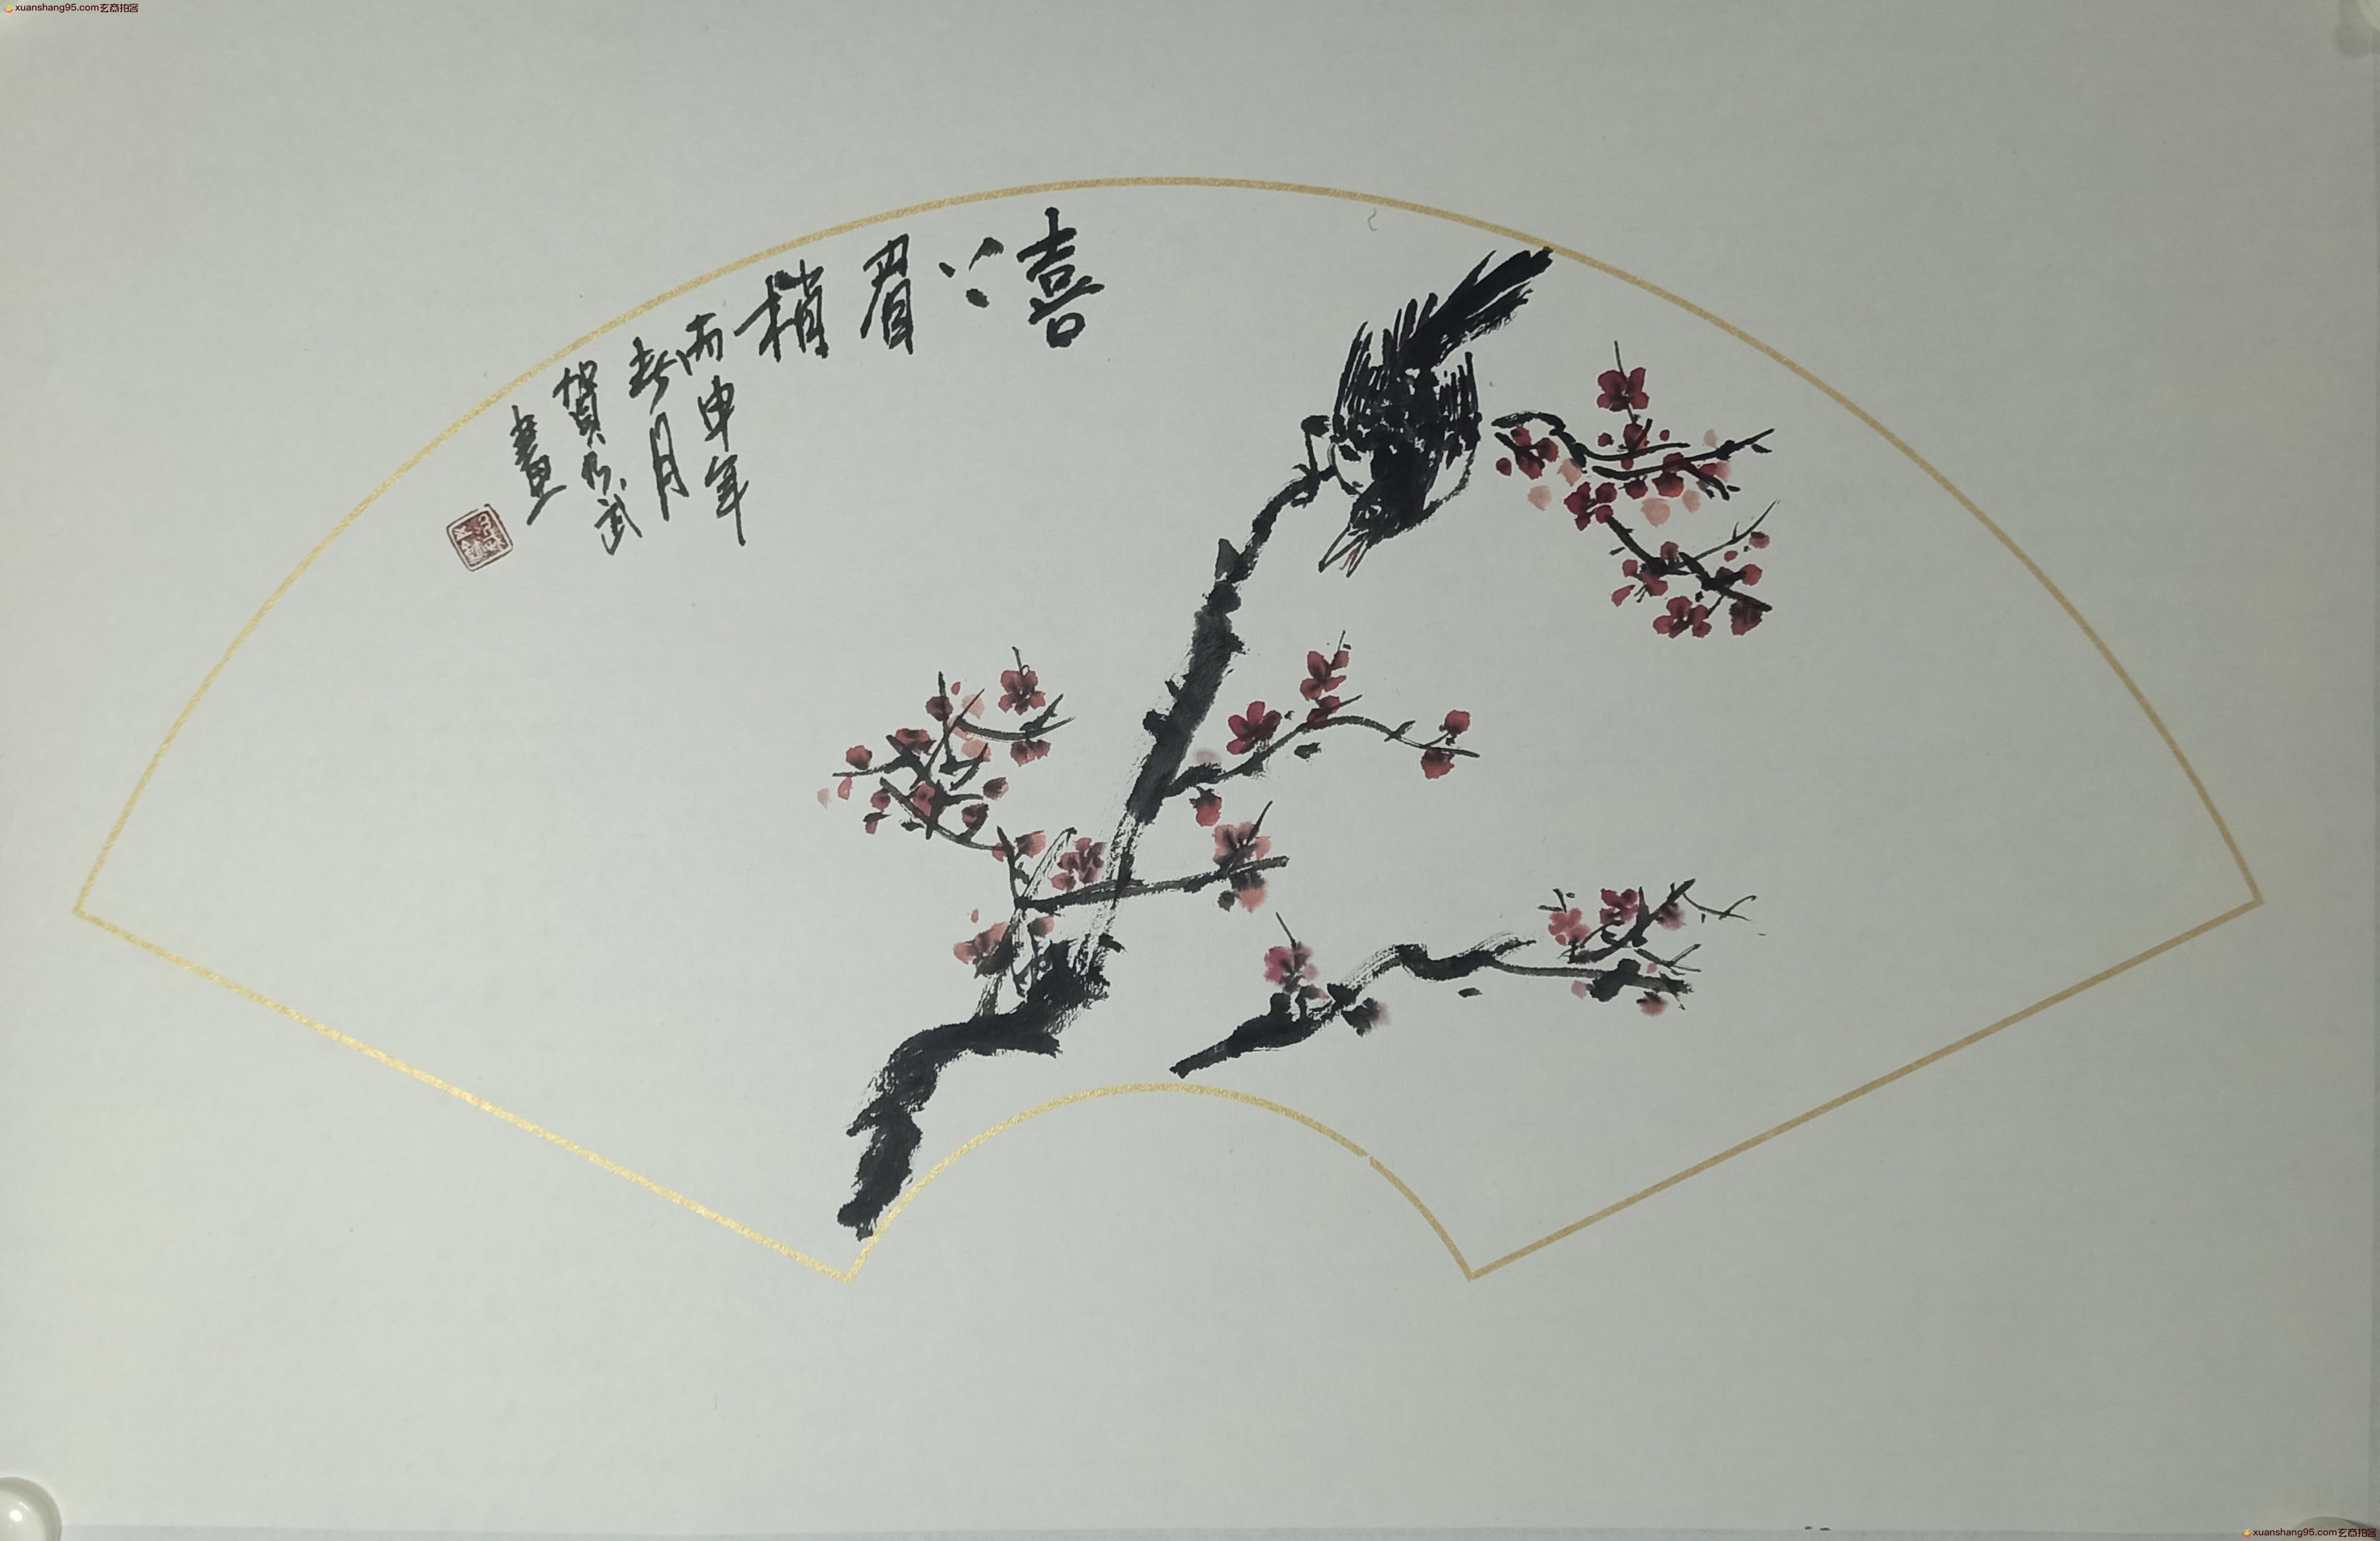 xuanshang95.com玄商拍客
喜上眉梢
丙申年
春月
賀
畫
xuanshang95.com玄商拍客